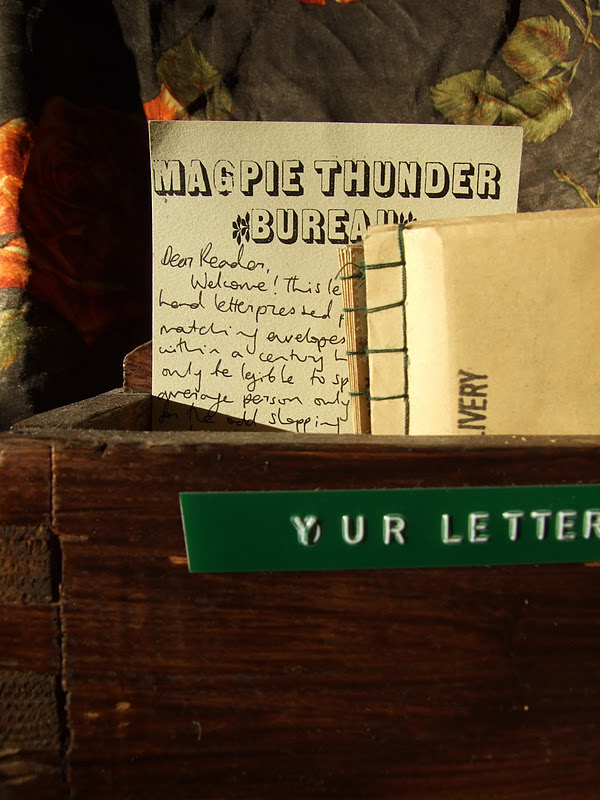 MAGPIE THUNDER
BUREAU
Dear Reader,
Welcome! This le
hand letterpressed
matching envelopes
within a century
only be legible to sp
average person only
for the odd shopping
IVERY
YOUR LETTER